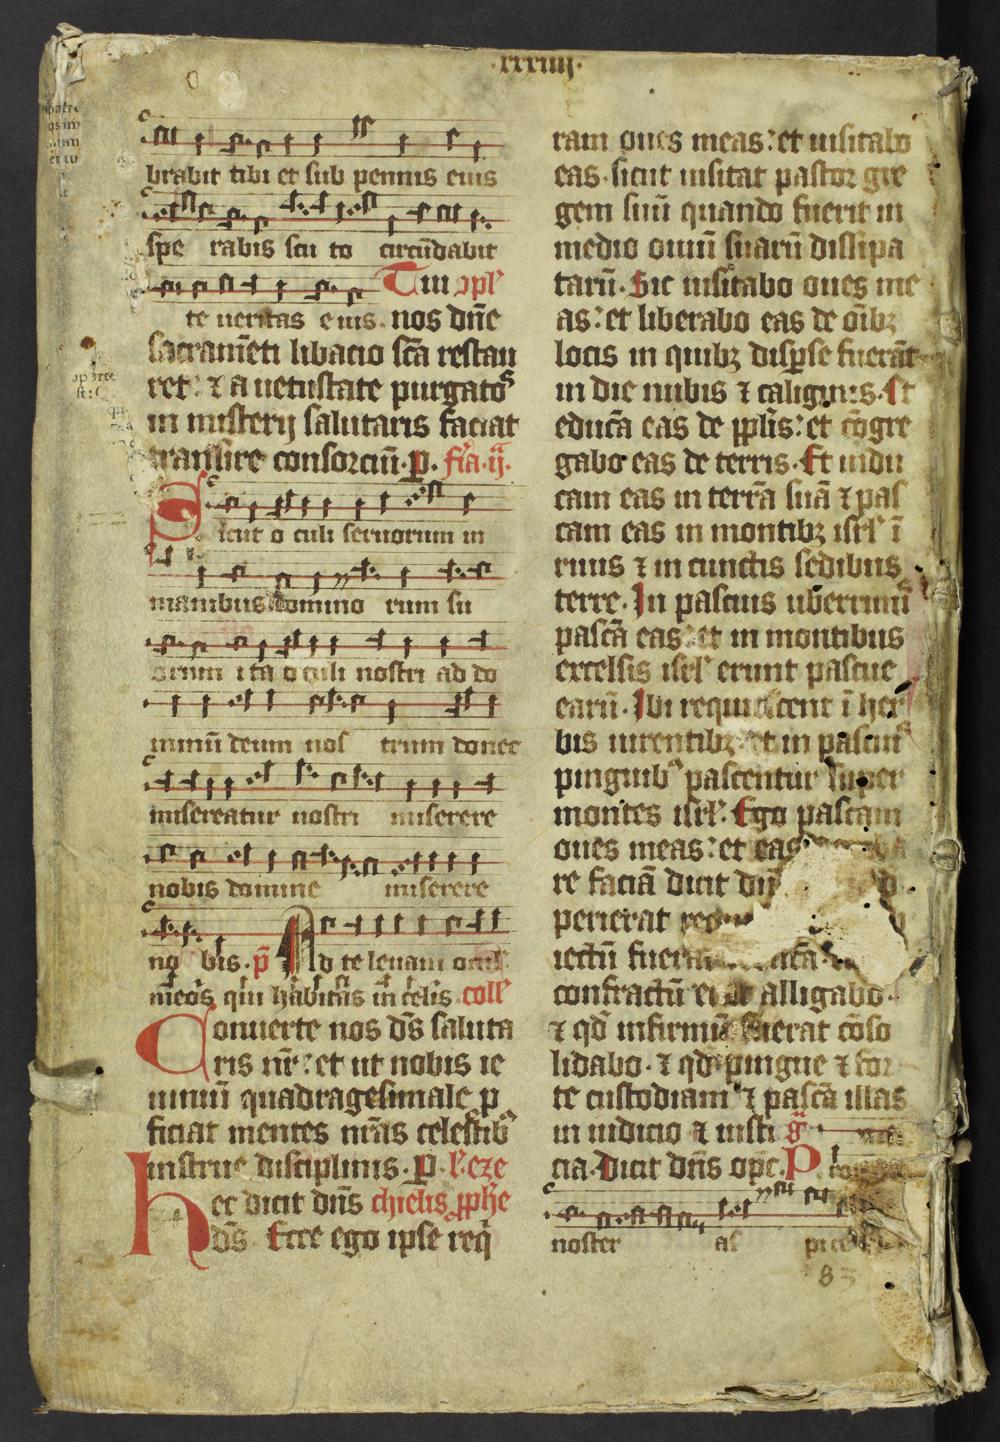 .xxxiiij.
brabit tibi et sub pennis eius
spe rabis scu to circūdabit
te ueritas eius. Tui ꝯplͤ
nos dn̄e
sacramēti libacio sc̄a restau
ret: ⁊ a uetustate purgatoˢ
in misterij salutaris faciat
transire consorciū. p̲. fr̄a. ij.
Sicut o culi seruorum in
manibus domino rum su
orum ita oculi nostri ad do
minū deum nos trum donec
misereatur nostri miserere
nobis domine miserere
no bis. p̄ Ad te leuaui ocul
meos qui habitas in celis. coll̄
Conuerte nos ds̄ saluta
ris nr̄: et ut nobis ie
iuniū quadragesimale p
ficiat mentes nr̄as celestibꝰ
instrue disciplinis. P̲. l'. eze
chielis ꝓph̄e
Hec dicit dn̄s
ds̄. Ecce ego ipse req̄
ram oues meas: et uisitabo
eas. sicut uisitat pastor gre
gem suū quando fuerit in
medio ouiū suarū dissipa
tarū. Sic uisitabo oues me
as: et liberabo eas de oībꝫ
locis in quibꝫ disꝑse fuerāt
in die nubis ⁊ caliginis. Et
educā eas de ppl̄is: et cōgre
gabo eas de terris. Et indu
cam eas in terrā suā ⁊ pas
cam eas in montibꝫ isrl̄ ī
riuis ⁊ in cunctis sedibus
terre. In pascuis uberrimiˢ
pascā eas: et in montibus
excelsis isrl̄ erunt pascue
earū. Ibi requiescent ī her
bis uirentibꝫ: et in pascuiˢ
pinguibꝰ pascentur super
montes isrl̄. Ego pascam
oues meas: et eas
re faciā dicit dn̄
perierat
iectū
confractū alligabo.
⁊ qd̄ infirmū fuerat cōso
lidabo. ⁊ qd̄ pingue ⁊ for
te custodiam ⁊ pascā illas
in iudicio ⁊ iusti g̃
cia. Dicit dn̄s opc̄. P
noster as
83